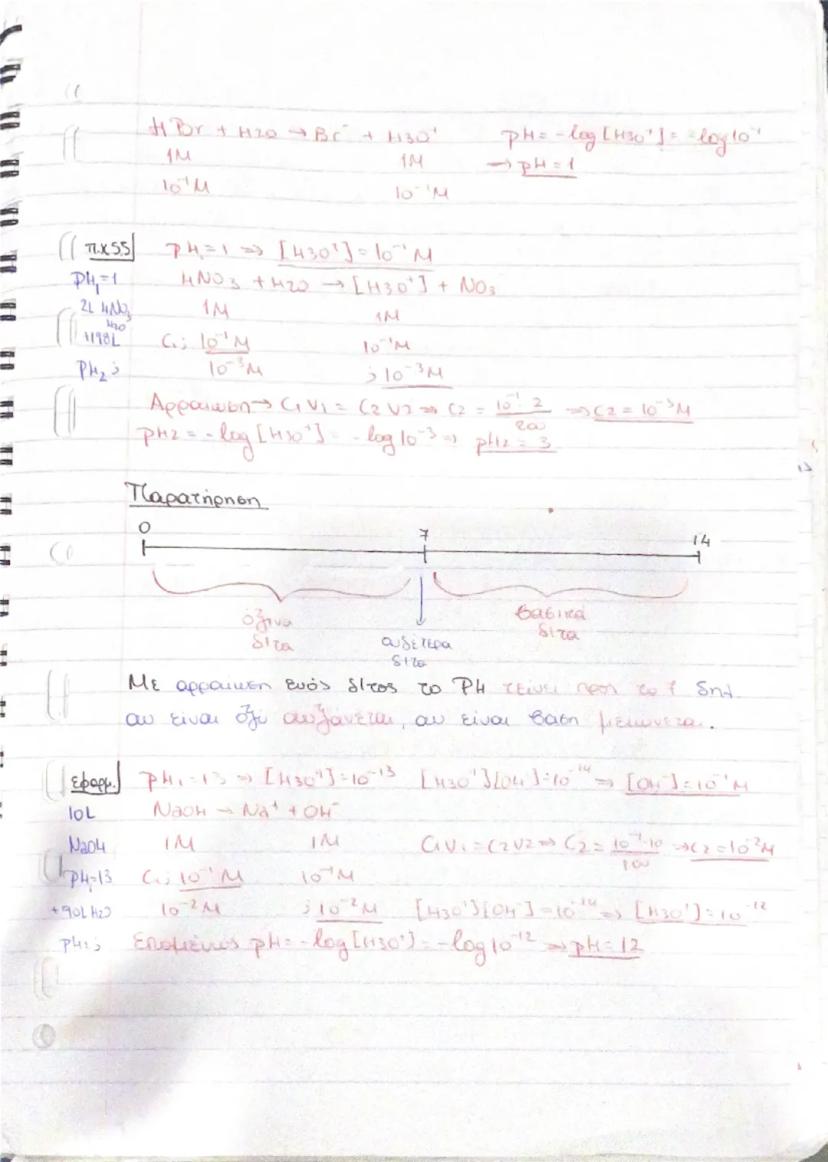 HBr + H2O → Br⁻ + H3O⁺ pH = -log[H3O⁺] = -log10⁻¹
1M 1M → pH = 1
10⁻¹M 10⁻¹M
π.χ 55 pH1 = 1 ⇒ [H3O⁺] = 10⁻¹M
pH1 = 1 HNO3 + H2O → [H3O⁺] + NO3
2L HNO3 1M 1M
+198L H2O C1; 10⁻¹M 10⁻¹M
pH2; 10⁻³M ; 10⁻³M
Αρραιωση → C1V1 = C2V2 ⇒ C2 = 10⁻¹·2/200 ⇒ C2 = 10⁻³M
pH2 = -log[H3O⁺] = -log10⁻³ ⇒ pH2 = 3
Παρατήρηση
0 7 14
όξινα βασικά
δ/τα ουδέτερα δ/τα
δ/τα
Με αρραιωση ενός δ/τος το PH τείνει προς το 7 δηλ.
αν είναι όξυ αυξάνεται, αν είναι βαση μειώνεται.
εφαρμ. pH1 = 13 ⇒ [H3O⁺] = 10⁻¹³ [H3O⁺][OH⁻] = 10⁻¹⁴ ⇒ [OH⁻] = 10⁻¹M
10L NaOH → Na⁺ + OH⁻
NaOH 1M 1M C1V1 = C2V2 ⇒ C2 = 10⁻¹·10/100 ⇒ C2 = 10⁻²M
pH1 = 13 C1; 10⁻¹M 10⁻¹M
+90L H2O 10⁻²M ; 10⁻²M [H3O⁺][OH⁻] = 10⁻¹⁴ ⇒ [H3O⁺] = 10⁻¹²
pH2; Επομένως pH = -log[H3O⁺] = -log10⁻¹² ⇒ pH = 12